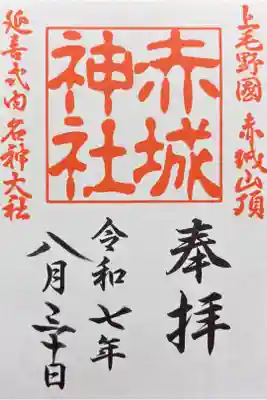 上毛野國 赤城山頂
赤城
神社
延喜式内 名神大社
奉拝
令和七年
八月三十日